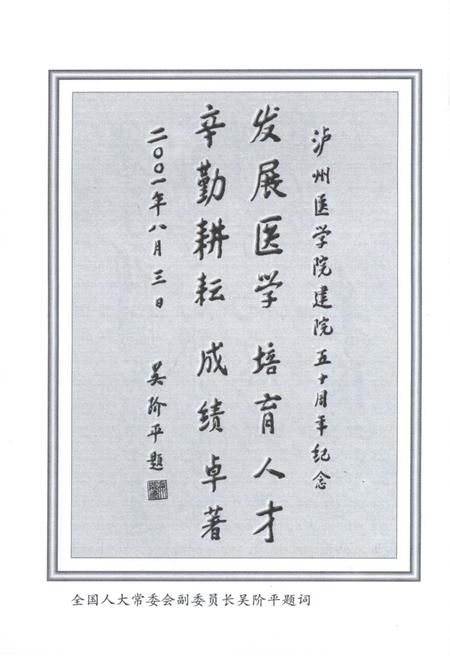 泸州医学院建院五十周年纪念
发展医学 培育人才
辛勤耕耘 成绩卓著
二〇〇一年八月三日 吴阶平题
全国人大常委会副委员长吴阶平题词